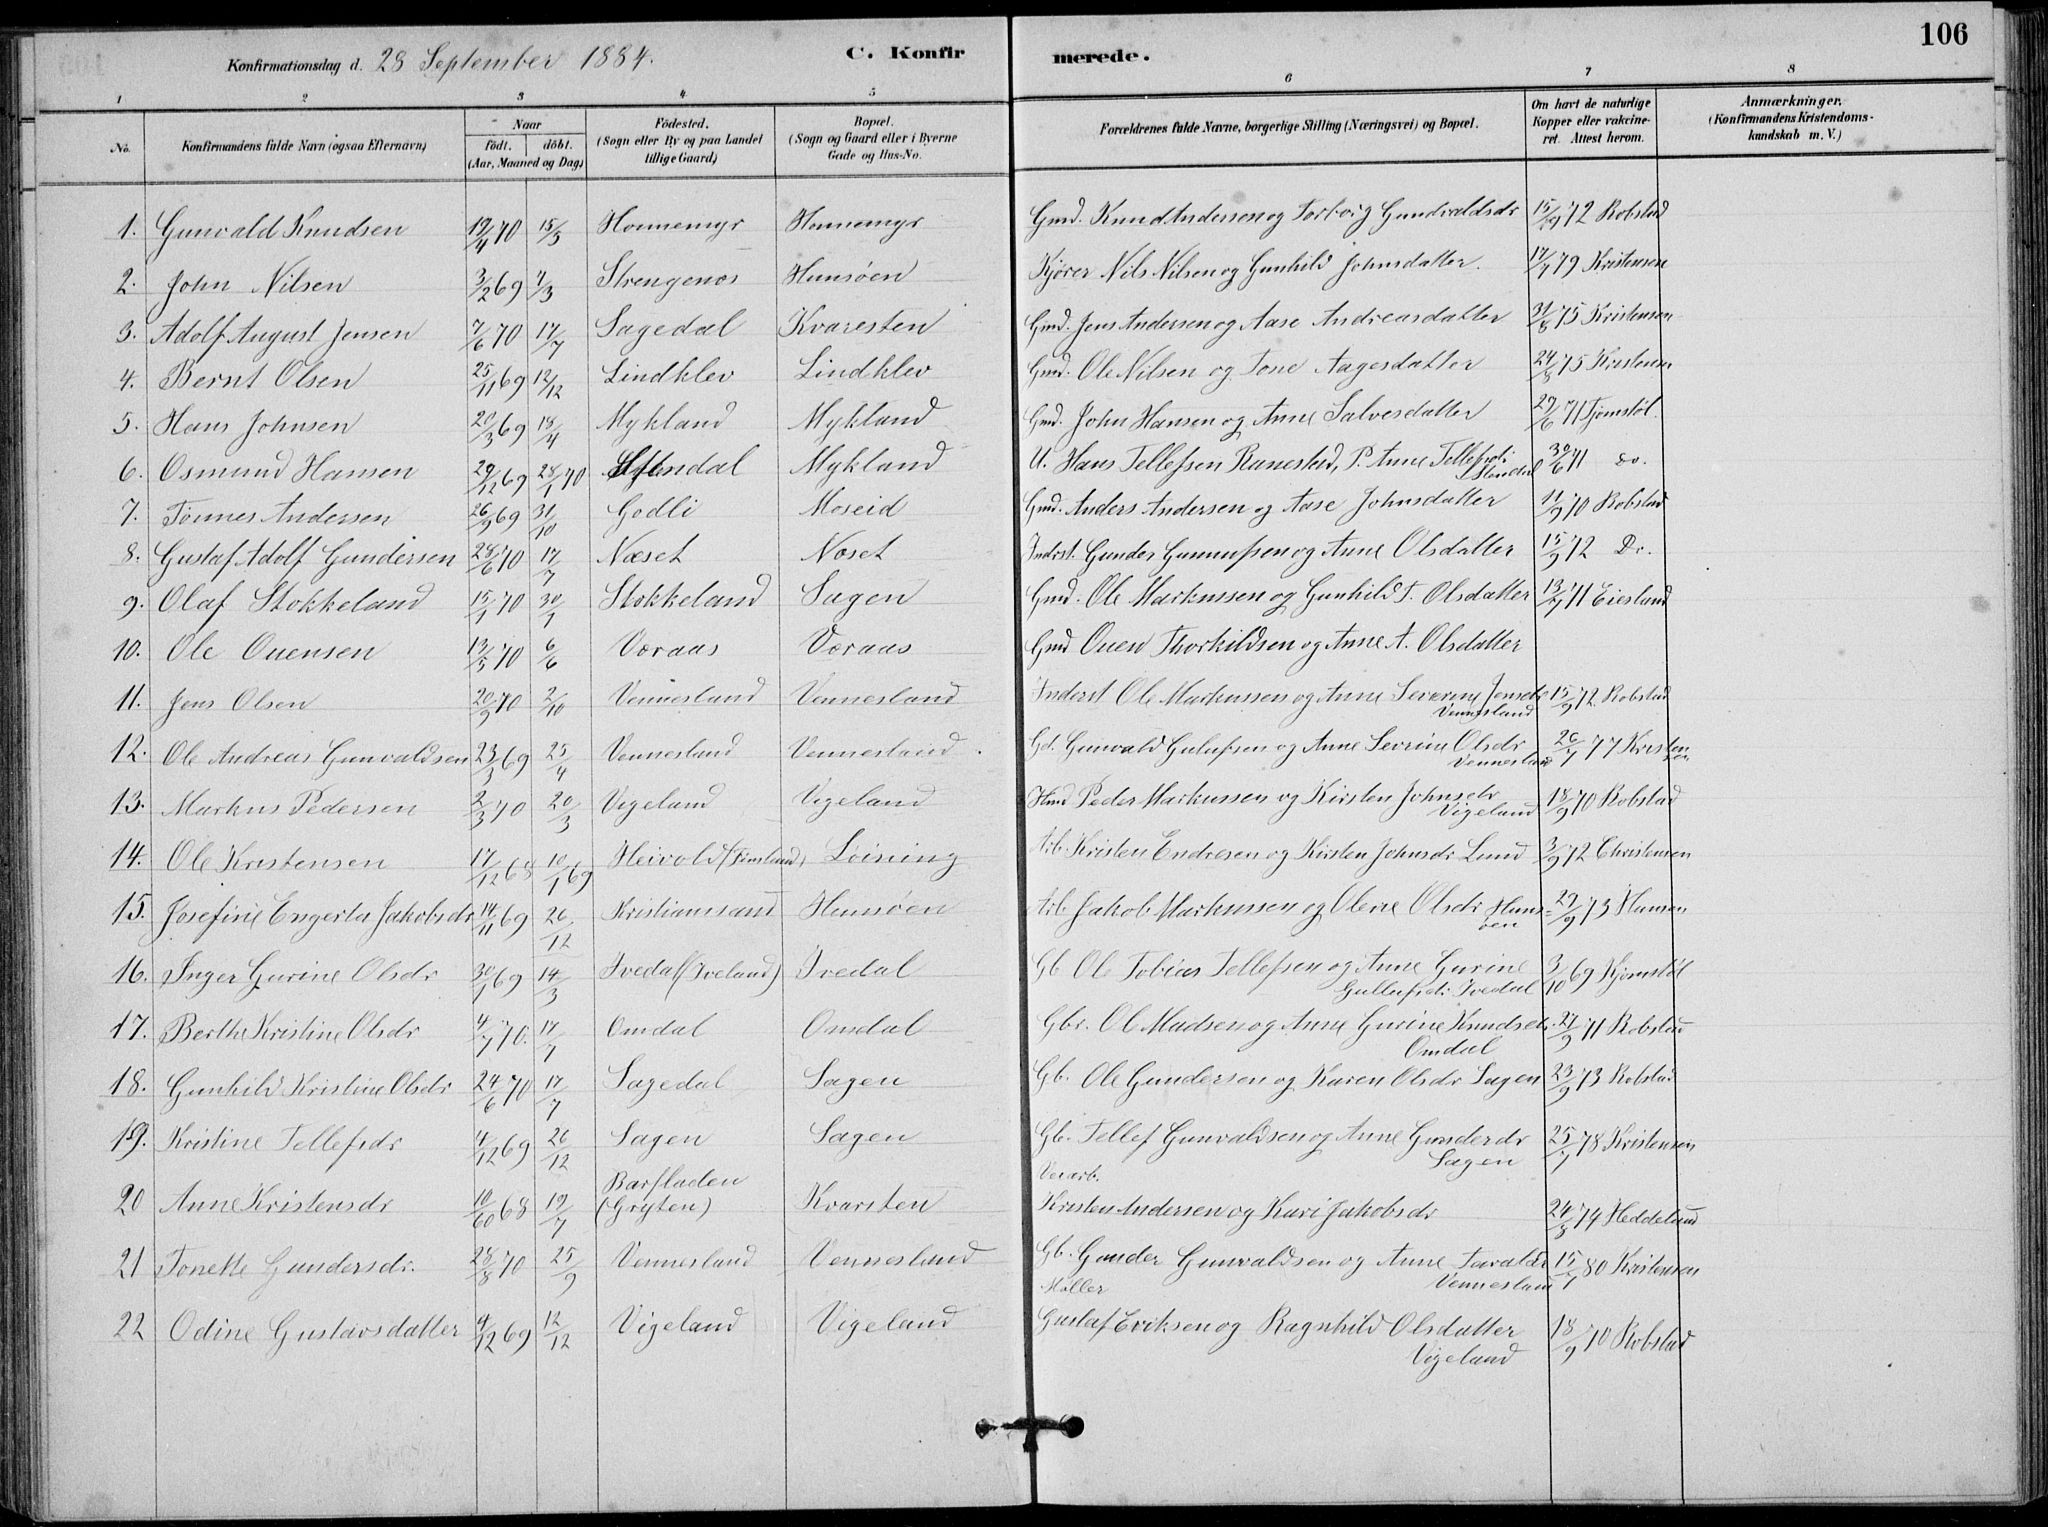 106
Konfirmationsdag d. 28 September 1884. C. Konfirmerede.
1 2 3 4 5 6 7 8
No. Konfirmandens fulde Navn (ogsaa Efternavn) Naar født. døbt. (Aar, Maaned og Dag) Fødested. (Sogn eller By og paa Landet tillige Gaard) Bopæl. (Sogn og Gaard eller i Byerne Gade og Hus-No. Forældrenes fulde Navne, borgerlige Stilling (Næringsvei) og Bopæl. Om havt de naturlige Kopper eller vakcineret. Attest herom. Anmærkninger. (Konfirmandens Kristendomskundskab m. V.)
1. Gunvald Knudsen 19/4 70 15/5 Honnemyr Honnemyr Gmd. Knud Andersen og Torborg Gundvaldsdr 15/9 72 Robstad
2. John Nilsen 3/2 69 7/3 Strengenes Hunsøen Kjører Nils Nilsen og Gunhild Johnsdatter. 17/7 79 Kristensen
3. Adolf August Jensen 7/6 70 17/7 Sagedal Kvaresten Gmd. Jens Andersen og Aase Andreasdatter 31/8 75 Kristensen
4. Bernt Olsen 25/11 69 12/12 Lindklev Lindklev Gmd. Ole Nilsen og Tone Aagesdatter 24/8 75 Kristensen
5. Hans Johnsen 20/3 69 18/4 Mykland Mykland Gmd. John Hansen og Anne Salvesdatter 27/6 71 Tjomstøl.
6. Osmund Hansen 29/12 69 28/1 70 Stendal Mykland U. Hans Tellefsen Ranestad, P. Anne Tellefsdr Stendal 30/6 71 do.
7. Tønnes Andersen 26/9 69 31/10 Godli Moseid Gmd. Anders Andersen og Aase Johnsdatter 11/9 70 Robstad
8. Gustaf Adolf Gundersen 28/6 70 17/7 Næset Næset Inderst. Gunder Gunnufsen og Anne Olsdatter 15/9 72 Do.
9. Olaf Stokkeland 15/1 70 30/1 Stokkeland Sagen Gmd. Ole Markussen og Gunhild T. Olsdatter 13/7 71 Eiesland
10. Ole Ouensen 13/5 70 6/6 Væraas Væraas Gmd Ouen Thorkildsen og Anne A. Olsdatter
11. Jens Olsen 20/9 70 2/10 Vennesland Vennesland Inderst Ole Markussen og Anne Severine Jensdr Vennesland 15/9 72. Robstad
12. Ole Andreas Gunvaldsen 23/3 69 25/4 Vennesland Vennesland. Gd. Gunvald Gulufsen og Anne Severine Olsdr Vennesland 26/7 77 Kristensen
13. Markus Pedersen 2/3 70 20/3 Vigeland Vigeland Hmd Peder Markussen og Kirsten Johnsdr Vigeland 18/9 70 Robstad
14. Ole Kristensen 17/12 68 10/1 69 Heivold (Finsland) Løining Arb. Kristen Endresen og Kirsten Johnsdr Lund 3/9 72 Christensen
15. Josefine Engerta Jakobsdr 14/11 69 26/12 Kristianssand Hunsøen Arb Jakob Markussen og Olene Olsdr Hunsøen 29/9 73 Hansen
16. Inger Gurine Olsdr 30/1 69 14/3 Ivedal (Iveland) Ivedal Gb Ole Tobias Tellefsen og Anne Gurine Gullufsdr Ivedal 3/10 69 Kjomstøl
17. Berthe Kristine Olsdr 4/7 70. 17/7 Omdal Omdal Gbr. Ole Madsen og Anne Gurine Knudsdr. Omdal 27/9 71 Robstad
18. Gunhild Kristine Olsdr 24/6 70 17/7 Sagedal Sagen Gb. Ole Gundersen og Karen Olsdr Sagen 23/9 73 Robstad
19. Kristine Tellefsdr 4/12 69 26/12 Sagen Sagen Gb. Tellef Gunvaldsen og Anne Gundersdr Sagen 25/7 78 Kristensen
20 Anne Kristensdr 10/60 68 19/7 Barfladen (Gryten) Kvarsten Veiarb. Kristen Andersen og Kari Jakobsdr 24/8 74 Heddeland
21 Tonette Gundersdr. 28/8 70 25/9 Vennesland Vennesland Gb. Gunder Gunvaldsen og Anne Tarvaldsdr Vennesland 15/7 80 Kristensen
22 Odine Gustavsdatter 4/12 69 12/12 Vigeland Vigeland Møller Gustaf Eriksen og Ragnhild Olsdatter Vigeland 18/9 70 Robstad